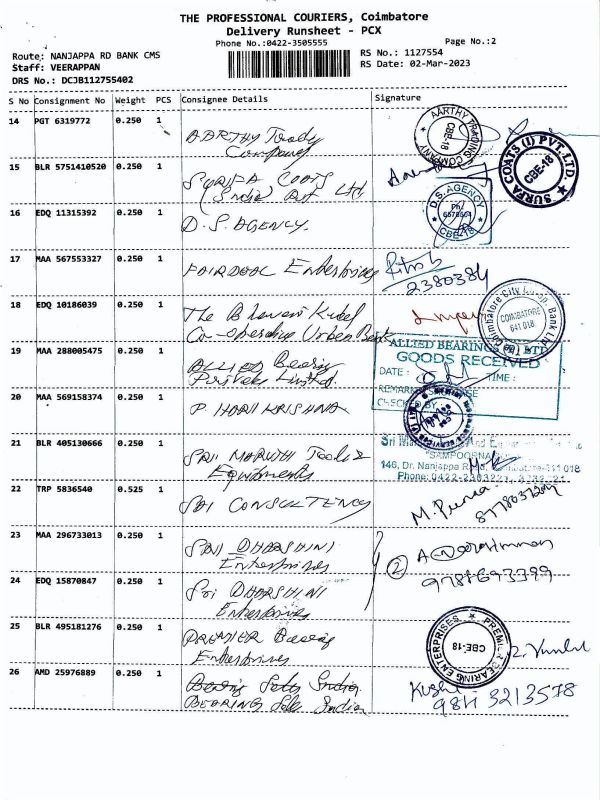 THE PROFESSIONAL COURIERS, Coimbatore
Delivery Runsheet - PCX
Phone No.:0422-3505555
Page No.:2
Route: NANJAPPA RD BANK CMS
Staff: VEERAPPAN
DRS No.: DCJB112755402
RS No.: 1127554
RS Date: 02-Mar-2023
S No Consignment No Weight PCS Consignee Details Signature
14 PGT 6319772 0.250 1
AARTHY Trady
Company
AARTHY TRADING COMPANY CBE-18
15 BLR 5751410520 0.250 1
SURFA COATS
(India) Pvt Ltd
SURFA COATS (I) PVT.LTD. CBE-18
16 EDQ 11315392 0.250 1
D.S. AGENCY
D.S. AGENCY
CBE-18
17 MAA 567553327 0.250 1
FAIRDEAL Enterprises
2380384
18 EDQ 10186039 0.250 1
The Bhavani Kudal
Co-operative Urban Bank
COIMBATORE
641 018
19 MAA 288005475 0.250 1
ALLIED Bearing
Private Limited.
ALLIED BEARINGS (P) LTD
GOODS RECEIVED
DATE : TIME :
CHECKED BY
20 MAA 569158374 0.250 1
P HARI KRISHNA
21 BLR 405130666 0.250 1
SRI MARUTHI Tools &
Equipments
"SAMPOORNA"
146, Dr. Nanjappa Road, Coimbatore-641 018
22 TRP 5836540 0.525 1
SAI CONSULTENCY
23 MAA 296733013 0.250 1
SRI DHARSHINI
Enterprises
2
24 EDQ 15870847 0.250 1
Sri DHARSHINI
Enterprises
25 BLR 495181276 0.250 1
PREMIER Bearing
Enterprises
PREMIER BEARING ENTERPRISES CBE-18
26 AMD 25976889 0.250 1
BEARING Sale India
9843213578